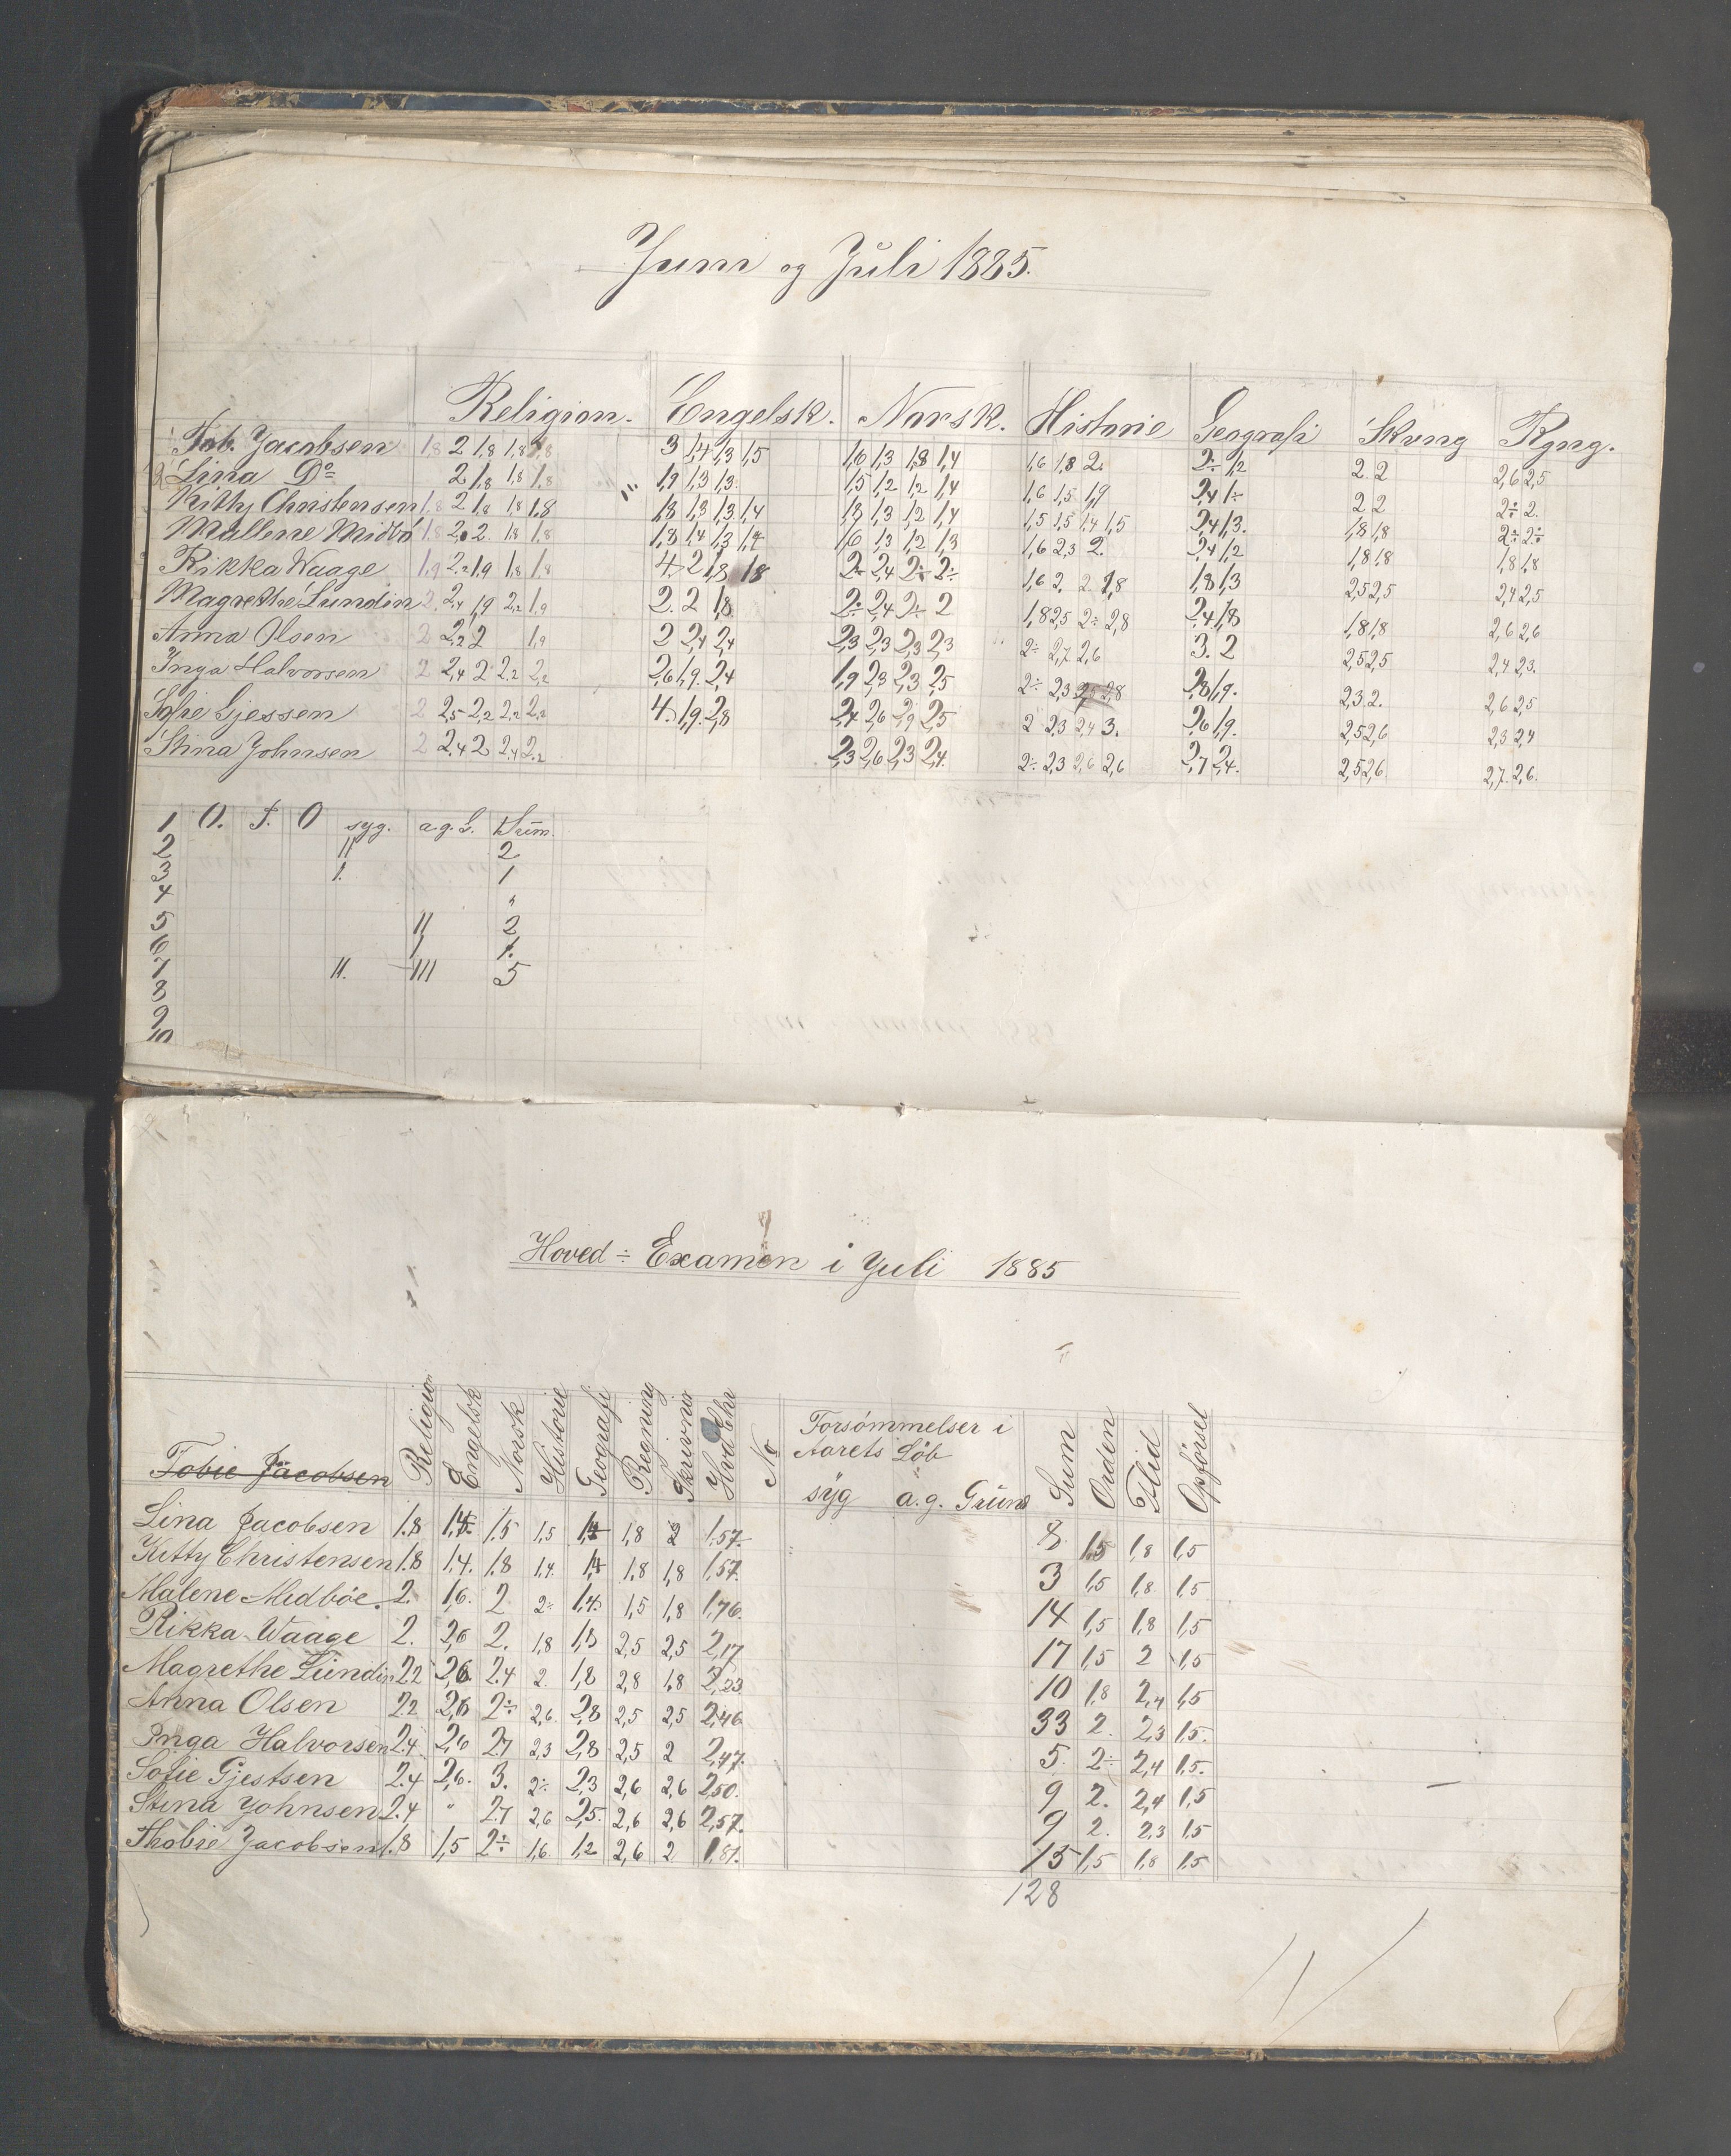 Juni og Juli 1885.
Religion. Engelsk. Norsk. Historie Geografi Skvng Rgng.
Tob. Jacobsen 1,8 2 1,8 1,8 1,8 3 1,4 1,3 1,5 1,6 1,3 1,8 1,4 1,6 1,8 2. 2÷ 1,2 2 2 2,6 2,5
Lina Do 2 1,8 1,8 1,8 1,9 1,3 1,3. 1,5 1,2 1,2 1,4 1,6 1,5 1,9 2,4 1÷ 2 2 2÷ 2.
Kitty Christensen 1,8 2 1,8 1,8 1,8 1,8 1,3 1,3 1,4 1,8 1,3 1,2 1,4 1,5 1,5 1,4 1,5 2,4 1,3. 1,8 1,8 2÷ 2÷
Mallene Midbö 1,8 2 2. 1,8 1,8 1,8 1,4 1,3 1,4 1,6 1,3 1,2 1,3 1,6 2,3 2. 2,4 1,2 1,8 1,8 1,8 1,8
Rikka Waage 1,9 2,2 1,9 1,8 1,8 4. 2 1,8 1,8 2÷ 2,4 2÷ 2÷ 1,6 2. 2 1,8 1,8 1,3 2,5 2,5 2,4 2,5
Magrethe Lundin 2 2,4 1,9 2,2 1,9 2. 2 1,8 2÷ 2,4 2÷ 2 1,8 2,5 2÷ 2,8 2,4 1,8 1,8 1,8 2,6 2,6
Anna Olsen 2 2,2 2 1,9 2 2,4 2,4 2,3 2,3 2,3 2,3 2÷ 2,7 2,6 3. 2 2,5 2,5 2,4 2,3.
Inga Halvorsen 2 2,4 2 2,2 2,2 2,6 1,9. 2,4 1,9 2,3 2,3 2,5 2÷ 2,3 2,8 2,8 1,9. 2,3 2. 2,6 2,5
Sofie Gjessen 2 2,5 2,2 2,2 2,2 4. 1,9. 2,8 2,4 2,6 2,9 2,5 2 2,3 2,4 3. 2,6 1,9. 2,5 2,6 2,3 2,4
Stina Johnsen 2 2,4 2 2,4 2,2 2,3 2,6 2,3 2,4. 2÷ 2,3 2,6 2,6 2,7 2,4. 2,5 2,6 2,7. 2,6.
1 O. F. O syg. a.g. G. Sum.
2 II 2
3 I. 1
4 "
5 II 2
6 I 1.
7 II. III 5
8
9
10
Hoved÷Examen i Juli 1885
Religion Engelsk Norsk Historie Geografi Regning Skrivning No Forsömmelser i Aarets Löb syg a.g. Grund Sum Orden Flid Opförsel
Tobie Jacobsen
Lina Jacobsen 1.8 1,4. 1.5 1,5 1,4 1,8 2 1,57. 8 1,5 1,8 1,5
Kitty Christensen 1.8 1.4. 1.8 1,4. 1,4 1,8 1,8 1,57. 3 1,5 1,8 1,5
Malene Midböe. 2. 1,6. 2 2÷ 1,4. 1,5 1,8 1,76. 14 1,5 1,8 1,5
Rikka Waage 2. 2,6 2. 1,8 1,8 2,5 2,5 2,17 17 1,5 2 1,5
Magrethe Lundin 2.2 2,6. 2.4 2. 1,8 2,8 1,8 2,23 10 1,8 2,4 1,5
Anna Olsen 2.2 2,6 2÷ 2,6. 2,8 2,5 2,5 2,46 33 2. 2,3 1,5.
Inga Halvorsen 2.4 2,6 2.7 2,3 2,8 2,5 2 2,47. 5. 2÷ 2,4 1,5.
Sofie Gjestsen 2.4 2,6. 3. 2÷ 2,3 2,6 2,6 2,50. 9 2. 2,4 1,5
Stina Johnsen 2.4 " 2.7 2,6 2,5. 2,6 2,6 2,57. 9 2. 2,3 1,5
Thobie Jacobsen 1.8 1,5 2÷ 1,6. 1,2 2,6 2 1,81. 15 1,5 1,8 1,5
128